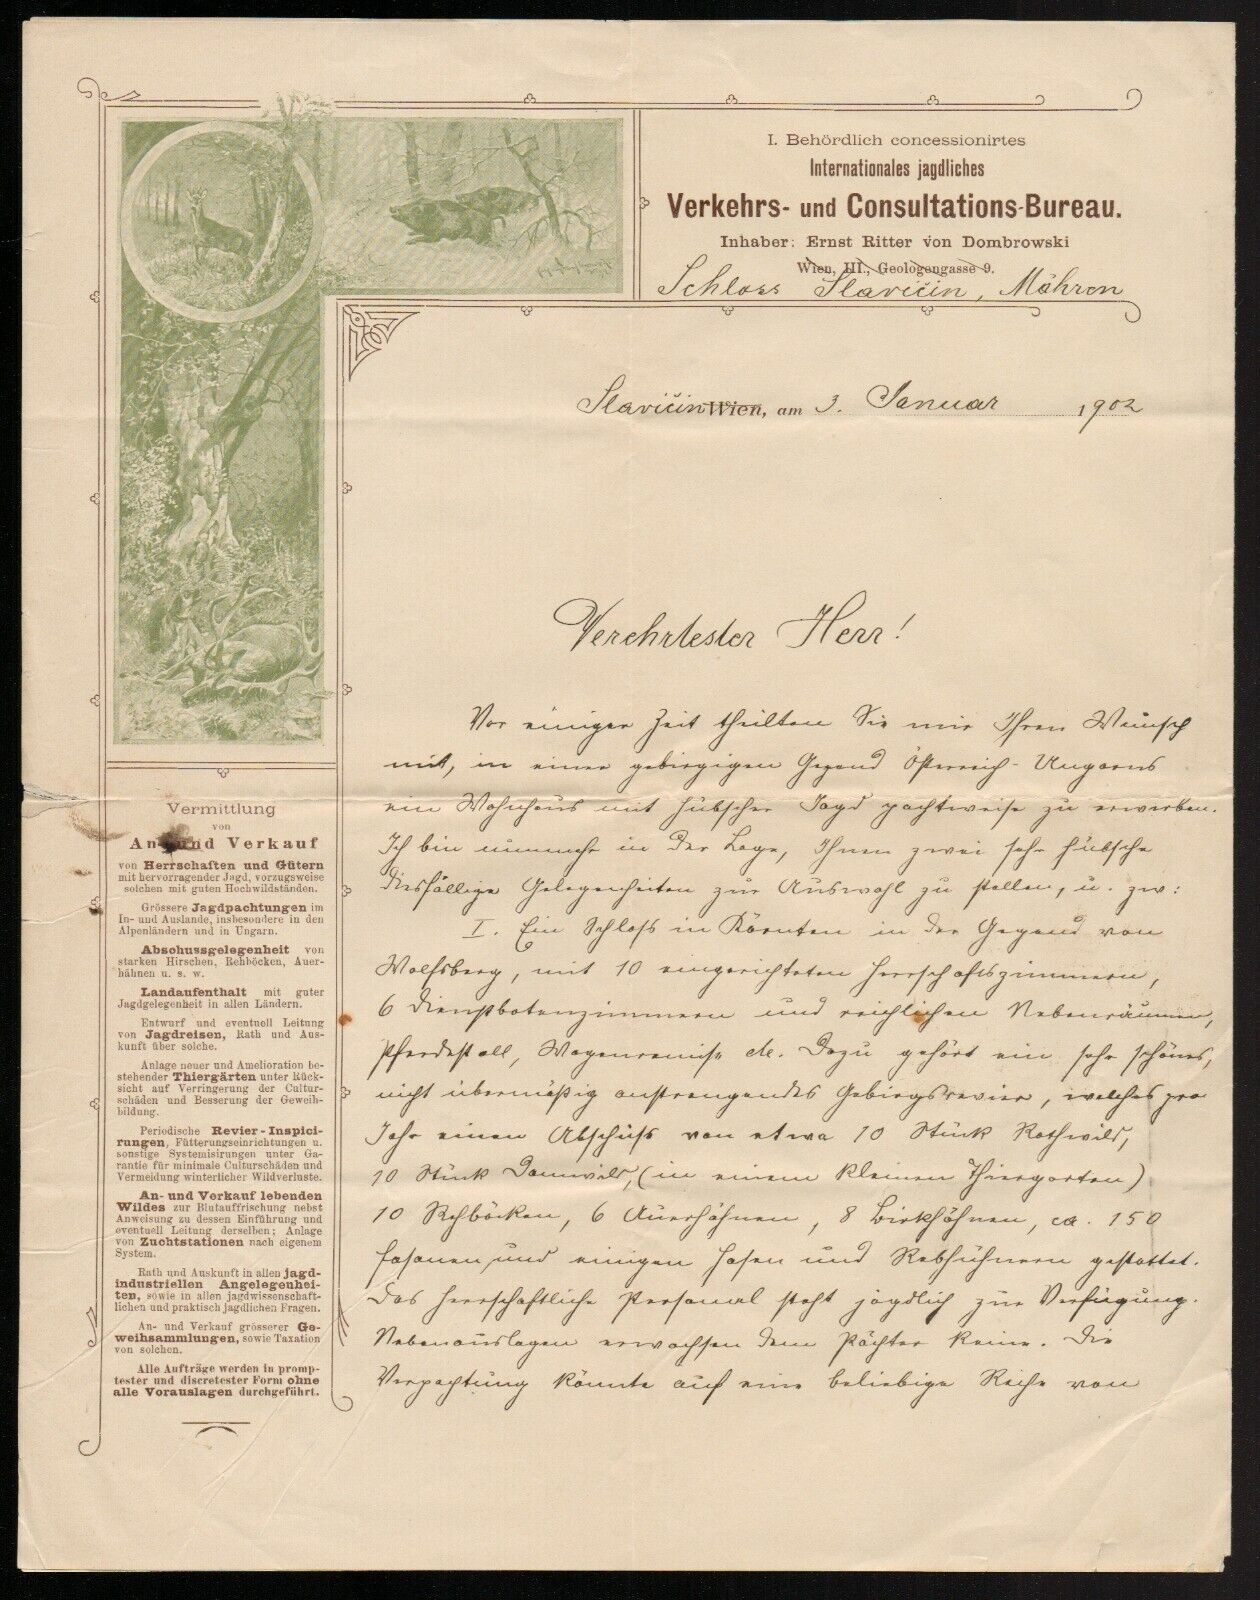 I. Behördlich concessionirtes
Internationales jagdliches
Verkehrs- und Consultations-Bureau.
Inhaber: Ernst Ritter von Dombrowski
Wien, III., Geologengasse 9.
Schloss Slavičin, Mähren
Slavičin Wien, am 3. Januar 1902
Verehrtester Herr!
Vor einiger Zeit theilten Sie mir Ihren Wunsch
mit, in einer gebirgigen Gegend Österreich-Ungarns
ein Wohnhaus mit hübscher Jagd pachtweise zu erwerben.
Ich bin nunmehr in der Lage, Ihnen zwei sehr hübsche
diesfällige Gelegenheiten zur Auswahl zu stellen, u. zw:
I. Ein Schloß in Kärnten in der Gegend von
Wolfsberg, mit 10 eingerichteten Herrschaftszimmern,
6 Dienstbotenzimmern und reichlichen Nebenräumen,
Pferdestall, Wagenremise etc. Dazu gehört ein sehr schönes,
nicht übermäßig anstrengendes Gebirgsrevier, welches pro
Jahr einen Abschuß von etwa 10 Stück Rothwild,
10 Stück Damwild, (in einem kleinen Thiergarten)
10 Rehböcken, 6 Auerhähnen, 8 Birkhähnen, ca. 150
Fasanen, und einigen Hasen und Rebhühnern gestattet.
Das herrschaftliche Personal steht jagdlich zur Verfügung.
Nebenauslagen erwachsen dem Pächter keine. Die
Verpachtung könnte auf eine beliebige Reihe von
Vermittlung
von
An- und Verkauf
von Herrschaften und Gütern
mit hervorragender Jagd, vorzugsweise
solchen mit guten Hochwildständen.
Grössere Jagdpachtungen im
In- und Auslande, insbesondere in den
Alpenländern und in Ungarn.
Abschussgelegenheit von
starken Hirschen, Rehböcken, Auer-
hähnen u. s. w.
Landaufenthalt mit guter
Jagdgelegenheit in allen Ländern.
Entwurf und eventuell Leitung
von Jagdreisen, Rath und Aus-
kunft über solche.
Anlage neuer und Amelioration be-
stehender Thiergärten unter Rück-
sicht auf Verringerung der Cultur-
schäden und Besserung der Geweih-
bildung.
Periodische Revier-Inspici-
rungen, Fütterungseinrichtungen u.
sonstige Systemisirungen unter Ga-
rantie für minimale Culturschäden und
Vermeidung winterlicher Wildverluste.
An- und Verkauf lebenden
Wildes zur Blutauffrischung nebst
Anweisung zu dessen Einführung und
eventuell Leitung derselben; Anlage
von Zuchtstationen nach eigenem
System.
Rath und Auskunft in allen jagd-
industriellen Angelegenhei-
ten, sowie in allen jagdwissenschaft-
lichen und praktisch jagdlichen Fragen.
An- und Verkauf grösserer Ge-
weihsammlungen, sowie Taxation
von solchen.
Alle Aufträge werden in promp-
tester und discretester Form ohne
alle Vorauslagen durchgeführt.